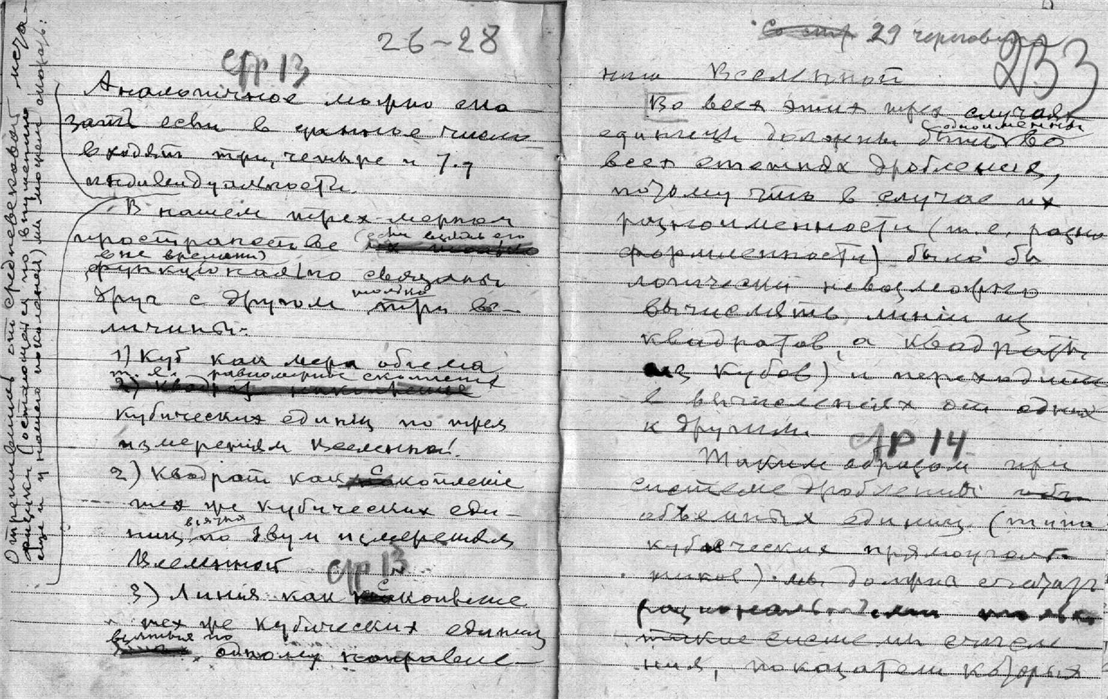 26-28
стр 13
Аналогичное можно ска
зать если в данное число
входят три, четыре и т.д
индивидуальности.
В нашем трех мерном
пространстве (если взять его
вне времени)
функционально связаны
друг с другом только три ве-
личины:
1) Куб как мера объема
т.е. равномерное скопление
кубических единиц по трем
измерениям вселенной.
2) Квадрат как скопление
тех же кубических еди-
ниц взятых по двум измерениям
Вселенной
стр 13
3) Линия как скопление
тех же кубических единиц
взятых по одному направле-
Отрешившись от средневековой мета-
физики (остающейся по внушению
еще и у нашего поколения) мы можем сказать:
Со стр 29 черновика
233
нию Вселенной
Во всех этих трех случаях
единицы должны быть одноименны во
всех степенях дробления,
потому что в случае их
разноименности (т.е. разно
форменности) было бы
логически невозможно
вычислять линии из
квадратов, а квадраты
из кубов) и переходить
в вычислениях от одних
к другим
стр 14
Таким образом при
системе дроблений
объемных единиц (типа
кубических прямоуголь
ников) мы должны считать
рациональными только
такие системы счисле
ния, показатели которых